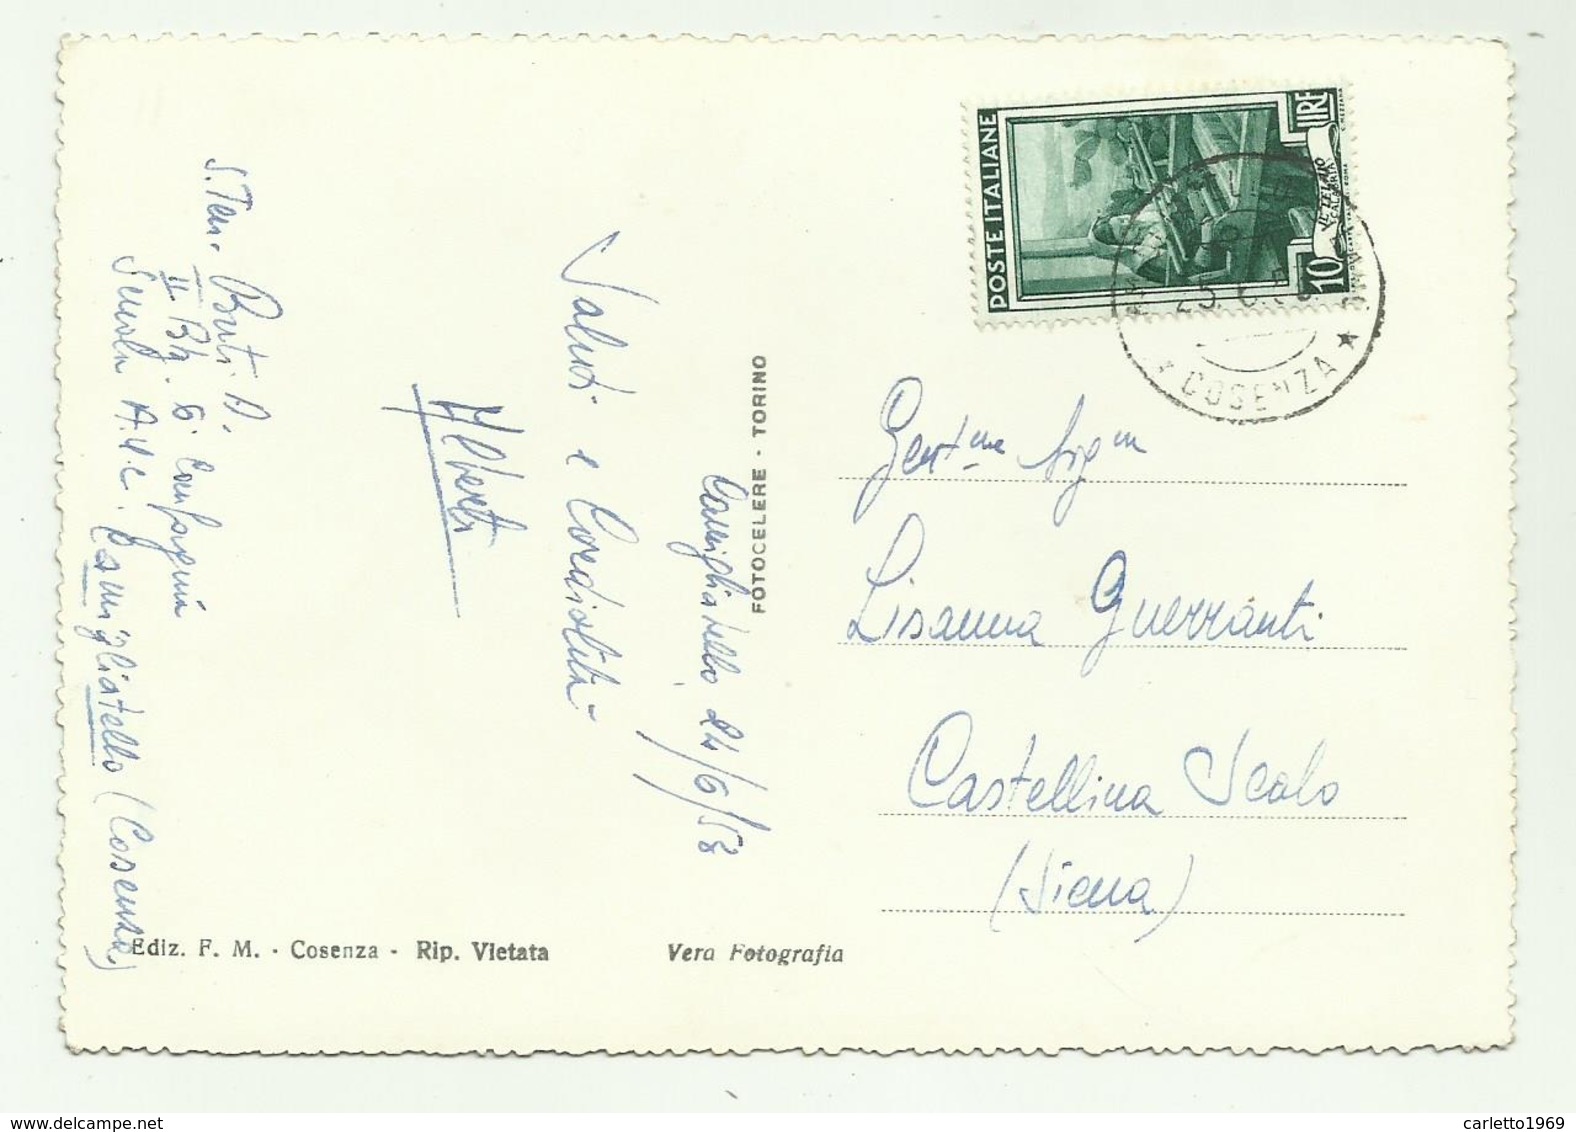 S. Ten. Berti A.
II Btg. 6ª Compagnia
Scuola A.U.C. Camigliatello (Cosenza)
Saluti e Cordialità
Alberto
Camigliatello, 24/6/58
FOTOCELERE - TORINO
POSTE ITALIANE
LIRE
10
IL TELAIO
CALABRIA
25. 6. 5
* COSENZA *
Gent.ma Sig.na
Lisanna Guerranti
Castellina Scalo
(Siena)
Ediz. F. M. - Cosenza - Rip. Vietata
Vera Fotografia
carletto1969